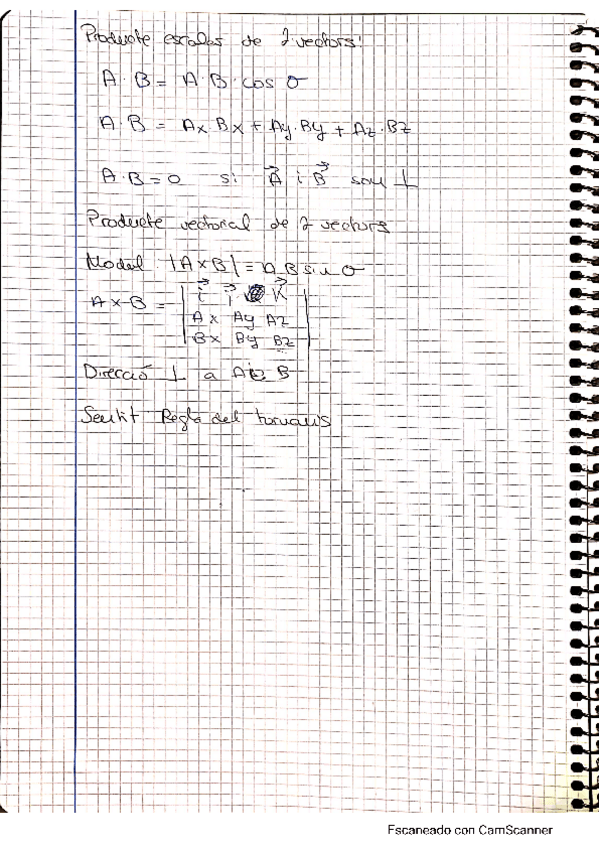 Producte escalar de 2 vectors:
A · B = A · B · cos σ
A · B = Ax · Bx + Ay · By + Az · Bz
A · B = 0 si A⃗ i B⃗ son ⊥
Producte vectorial de 2 vectors
Modul |A x B| = A B sin σ
A x B = | i⃗ j⃗ k⃗ |
Ax Ay Az
Bx By Bz
Direcció ⊥ a A i B
Sentit Regla del tornavis
Escaneado con CamScanner